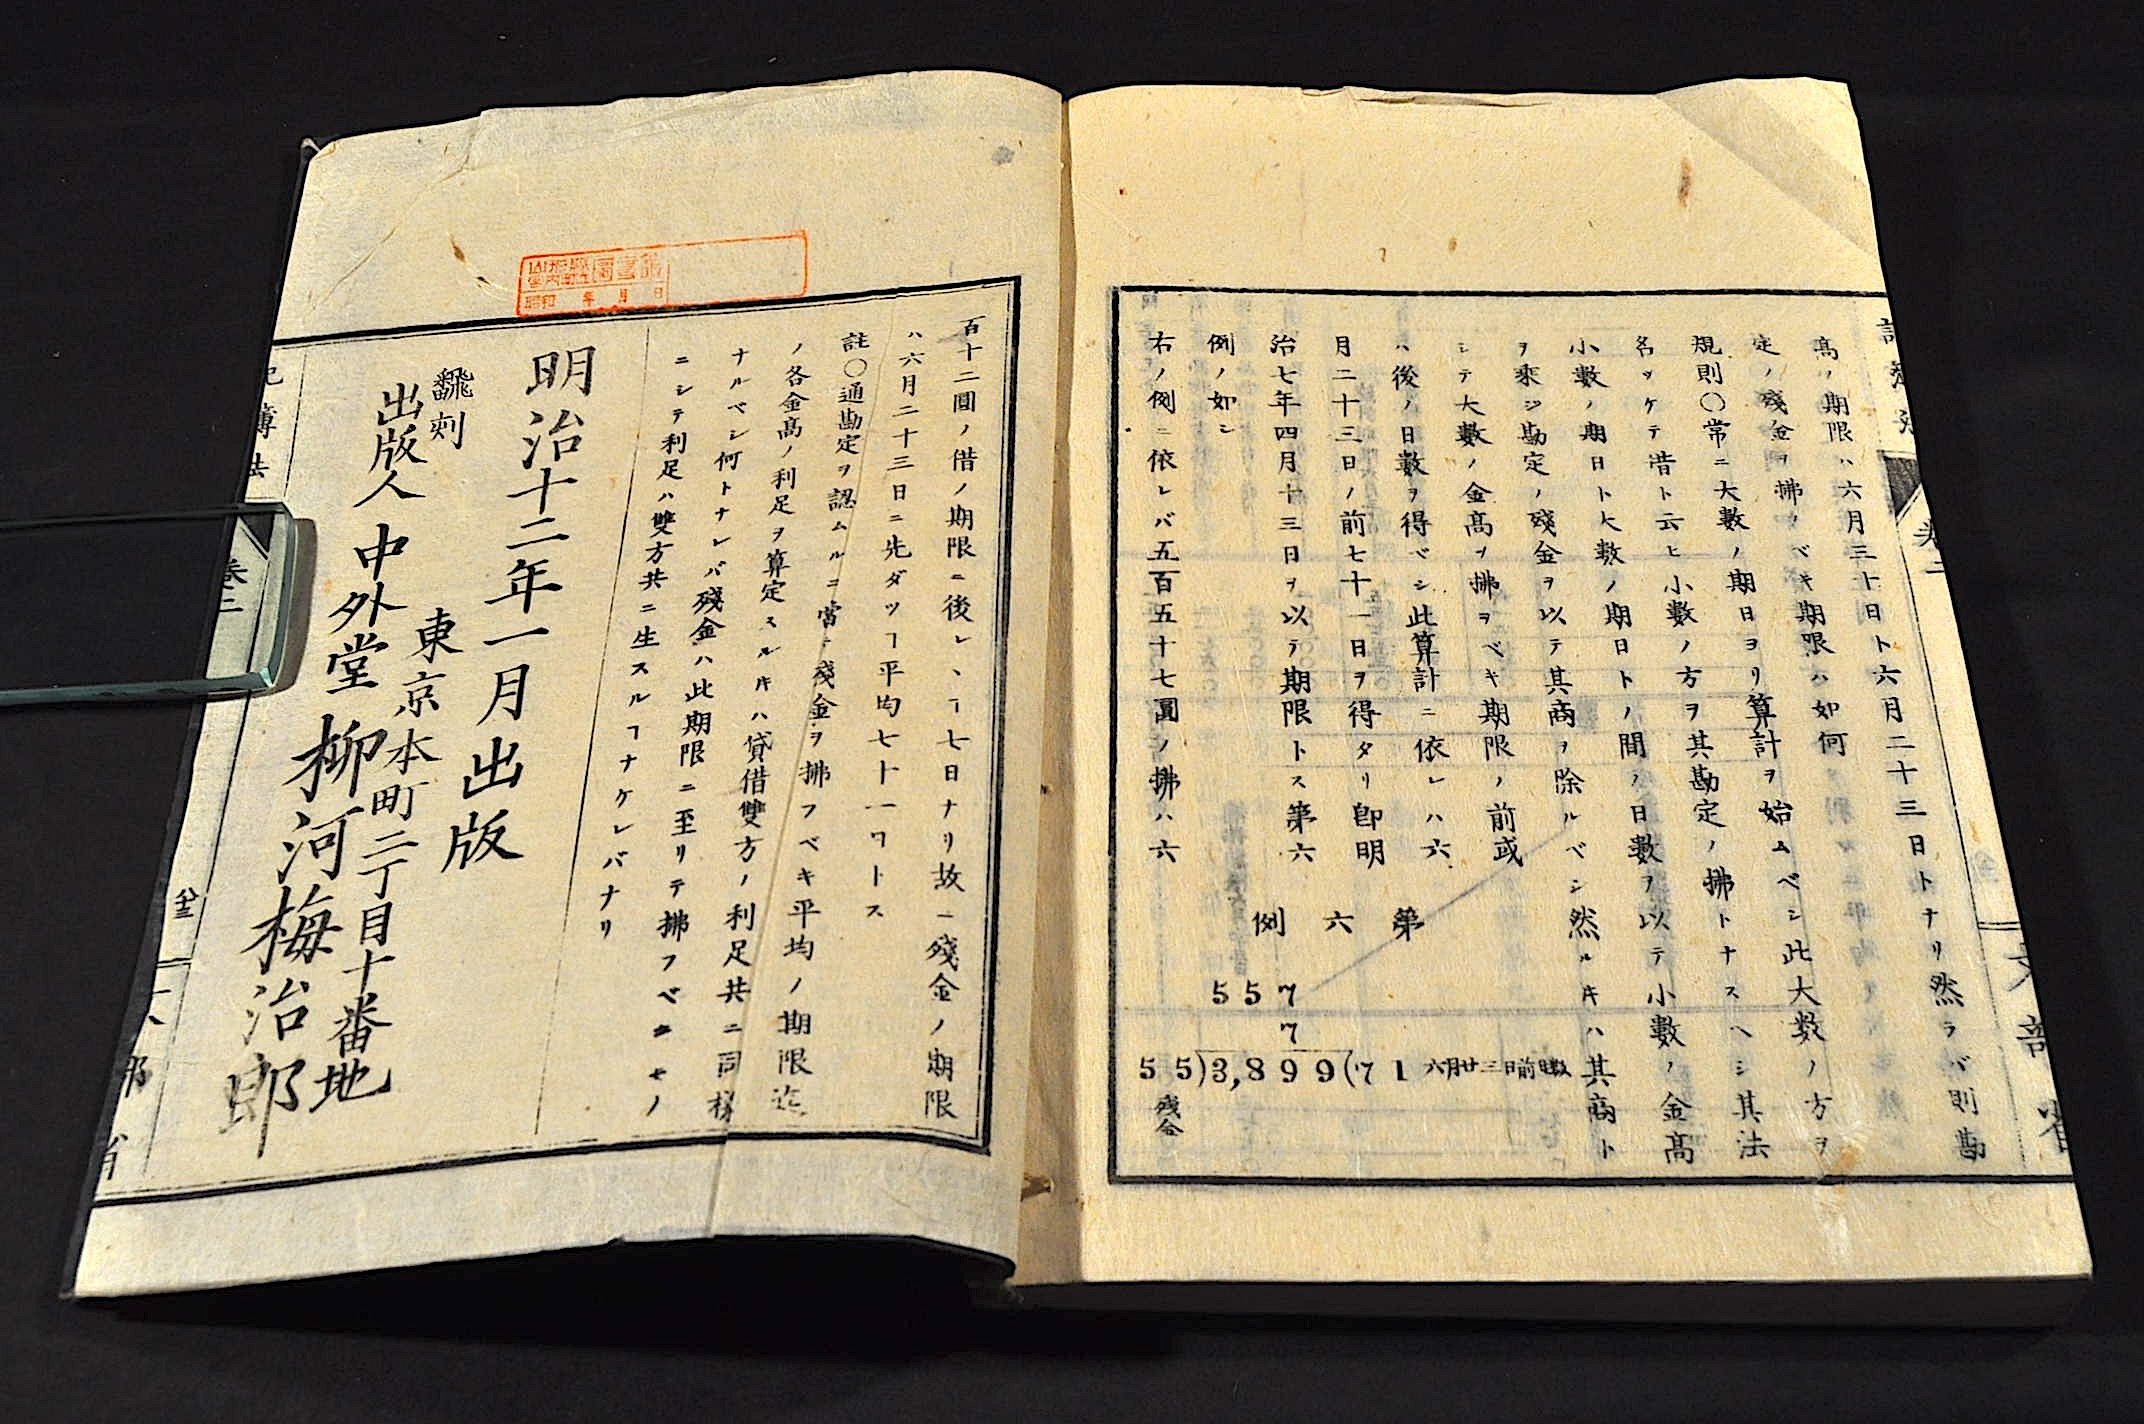 高ノ期限ハ六月三十日ト六月二十三日トナリ然ラバ則勘
定ノ殘金ヲ拂フベキ期限ハ如何
規則〇常ニ大數ノ期日ヨリ算計ヲ始ムベシ此大數ノ方ヲ
名ツケテ借ト云ヒ小數ノ方ヲ其勘定ノ拂トナスヘシ其法
小數ノ期日ト大數ノ期日トノ間ノ日數ヲ以テ小數ノ金高
ヲ乘ジ勘定ノ殘金ヲ以テ其商ヲ除ルベシ然ル𬼀ハ其商ト
シテ大數ノ金高ヲ拂フベキ期限ノ前或
ハ後ノ日數ヲ得ベシ此算計ニ依レハ六
月二十三日ノ前七十一日ヲ得タリ卽明
治七年四月十三日ヲ以テ期限トス第六
例ノ如シ
右ノ例ニ依レバ五百五十七圓ノ拂ハ六
第六例
557
7
55)3,899(71 六月廿三日前日數
殘金
卷二
文部省
百十二圓ノ借ノ期限ニ後レヽヿ七日ナリ故ニ殘金ノ期限
ハ六月二十三日ニ先ダツヿ平均七十一日トス
註〇通勘定ヲ認ムルニ當テ殘金ヲ拂フベキ平均ノ期限迄
ノ各金高ノ利足ヲ算定スル𪜈ハ貸借雙方ノ利足共ニ同樣
ナルベシ何トナレバ殘金ハ此期限ニ至リテ拂フベキモノ
ニシテ利足ハ雙方共ニ生スルヿナケレバナリ
明治十二年一月出版
飜刻
出版人
東京本町二丁目十番地
中外堂 柳河梅治郎
記簿法
卷二
文部省
圖書館
昭和 年 月 日